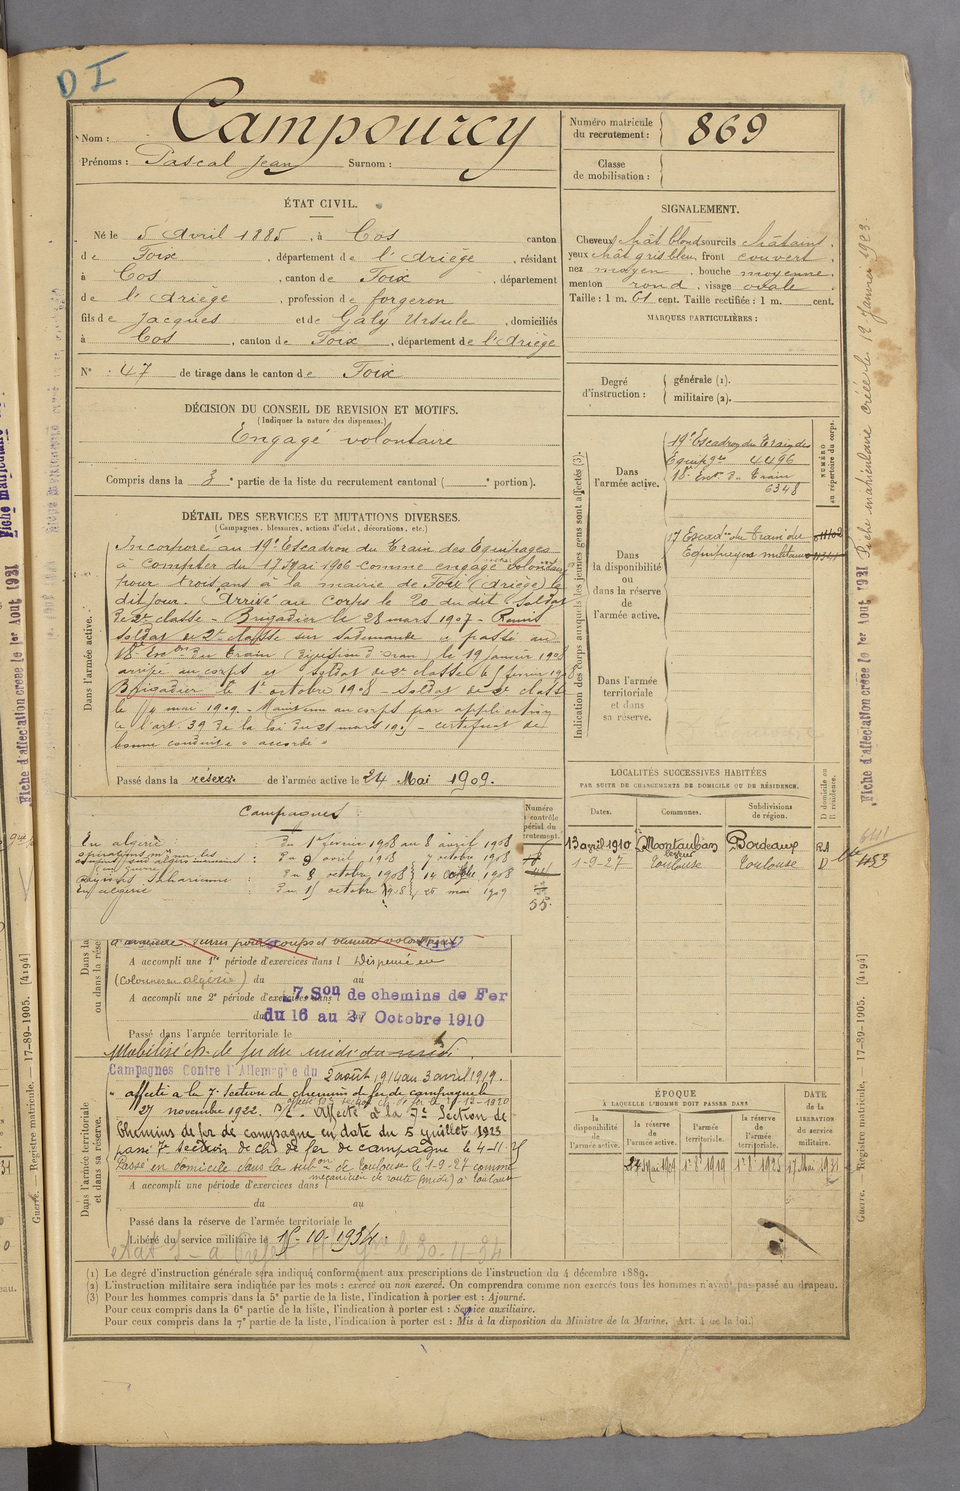 D I
Nom : Campourcy
Prénoms : Pascal Jean Surnom :
Numéro matricule du recrutement : 869
Classe de mobilisation :
ÉTAT CIVIL.
Né le 5 Avril 1885, à Cos canton
de Foix, département de l'Ariège, résidant
à Cos, canton de Foix, département
de l'Ariège, profession de forgeron
fils de Jacques et de Galy Ursule, domiciliés
à Cos, canton de Foix, département de l'Ariège
N° : 47 de tirage dans le canton de Foix
SIGNALEMENT.
Cheveux chât blond sourcils châtains,
yeux chât gris bleu, front couvert,
nez moyen, bouche moyenne,
menton rond, visage ovale.
Taille : 1 m. 61 cent. Taille rectifiée : 1 m. cent.
MARQUES PARTICULIÈRES :
Degré d'instruction : générale (1).
militaire (2).
DÉCISION DU CONSEIL DE REVISION ET MOTIFS.
(Indiquer la nature des dispenses.)
Engagé volontaire
Compris dans la 3e partie de la liste du recrutement cantonal ( e portion).
DÉTAIL DES SERVICES ET MUTATIONS DIVERSES.
(Campagnes, blessures, actions d'éclat, décorations, etc.)
Dans l'armée active.
Incorporé au 19e Escadron du Train des Equipages
à compter du 17 Mai 1906 comme engagé volontaire
pour trois ans à la mairie de Foix (Ariège) le
dit jour. Arrivé au corps le 20 du dit Soldat
de 2e classe - Brigadier le 28 mars 1907 - Remis
soldat de 2e classe sur sa demande et passé au
18e Escon du Train (Division d'Oran) le 19 janvier 1908
arrivé au corps et soldat de 2e classe le 1 février 1908
Brigadier le 1er octobre 1908 - Soldat de 2e classe
le 4 mai 1909 - Maintenu au corps par application
de l'art. 39 de la loi du 21 mars 1905 - certificat de
bonne conduite "accordé"
Passé dans la réserve de l'armée active le 24 Mai 1909.
Indication des corps auxquels les jeunes gens sont affectés (3).
NUMÉRO au répertoire du corps.
Dans l'armée active.
19e Escadron du Train des
Equipges 4496
18e Escon du Train
6348
Dans la disponibilité ou dans la réserve de l'armée active.
17 Escadon du Train des
Equipages militaires
Dans l'armée territoriale et dans sa réserve.
Campagnes
En algérie Du 1er février 1908 au 8 avril 1908
Du 9 avril 1908 7 octobre 1908
Du 8 octobre 1908 14 octobre 1908
En algérie Du 15 octobre 1908 25 mai 1909
55.
LOCALITÉS SUCCESSIVES HABITÉES
PAR SUITE DE CHANGEMENTS DE DOMICILE OU DE RÉSIDENCE.
Dates. Communes. Subdivisions de région. D domicile ou R résidence.
13 avril 1910 Montauban Bordeaux R
1-9-27 Toulouse Toulouse D
A accompli une 1re période d'exercices dans l Dispensé en
(Colonnes en algérie) du au
A accompli une 2e période d'exercices dans
7 Son de chemins de Fer
du 16 au 27 Octobre 1910
Passé dans l'armée territoriale le
Mobilisé Ch. de fer du midi du midi
Dans l'armée territoriale et dans sa réserve.
Campagnes Contre l'Allemagne du 2 août 1914 au 3 avril 1919.
affecté à la 7e Section de chemins de fer de campagne le
27 novembre 1922. Affecté à la 7e Section de
Chemins de fer de campagne en date du 5 juillet 1923
passé 7e section de ch. de fer de campagne le 4-11-25
Passé en domicile dans la subon de Toulouse le 1-9-27 comme
mécanicien de route (midi) à Toulouse
A accompli une période d'exercices dans
du au
Passé dans la réserve de l'armée territoriale le
Libéré du service militaire le 15-10-1934
ÉPOQUE
À LAQUELLE L'HOMME DOIT PASSER DANS
la disponibilité de l'armée active. la réserve de l'armée active. l'armée territoriale. la réserve de l'armée territoriale. DATE de la LIBÉRATION du service militaire.
24 Mai 1909 1er 8e 1919 1er 8e 1925 17 Mai 1931
(1) Le degré d'instruction générale sera indiqué conformément aux prescriptions de l'instruction du 4 décembre 1889.
(2) L'instruction militaire sera indiquée par les mots : exercé ou non exercé. On comprendra comme non exercés tous les hommes n'ayant pas passé au drapeau.
(3) Pour les hommes compris dans la 5e partie de la liste, l'indication à porter est : Ajourné.
Pour ceux compris dans la 6e partie de la liste, l'indication à porter est : Service auxiliaire.
Pour ceux compris dans la 7e partie de la liste, l'indication à porter est : Mis à la disposition du Ministre de la Marine. (Art. 4 de la loi.)
Fiche matriculaire créée le 12 Janvier 1923.
Fiche d'affectation créée le 1er Aout 1931
Guerre. — Registre matricule. — 17-89-1905. [4194]
Fiche d'affectation créée le 1er Aout 1931
Guerre. — Registre matricule. — 17-89-1905. [4194]